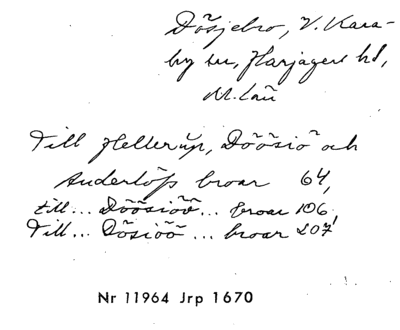 Dösjebro, V. Kara-
by sn, Harjagers hd,
M.län
Till Hellerup, Döösiö och
Anderlöfs broar 64,
till... Döösiöö... broar 106.
Till... Dösiöö... broar 207
Nr 11964 Jrp 1670